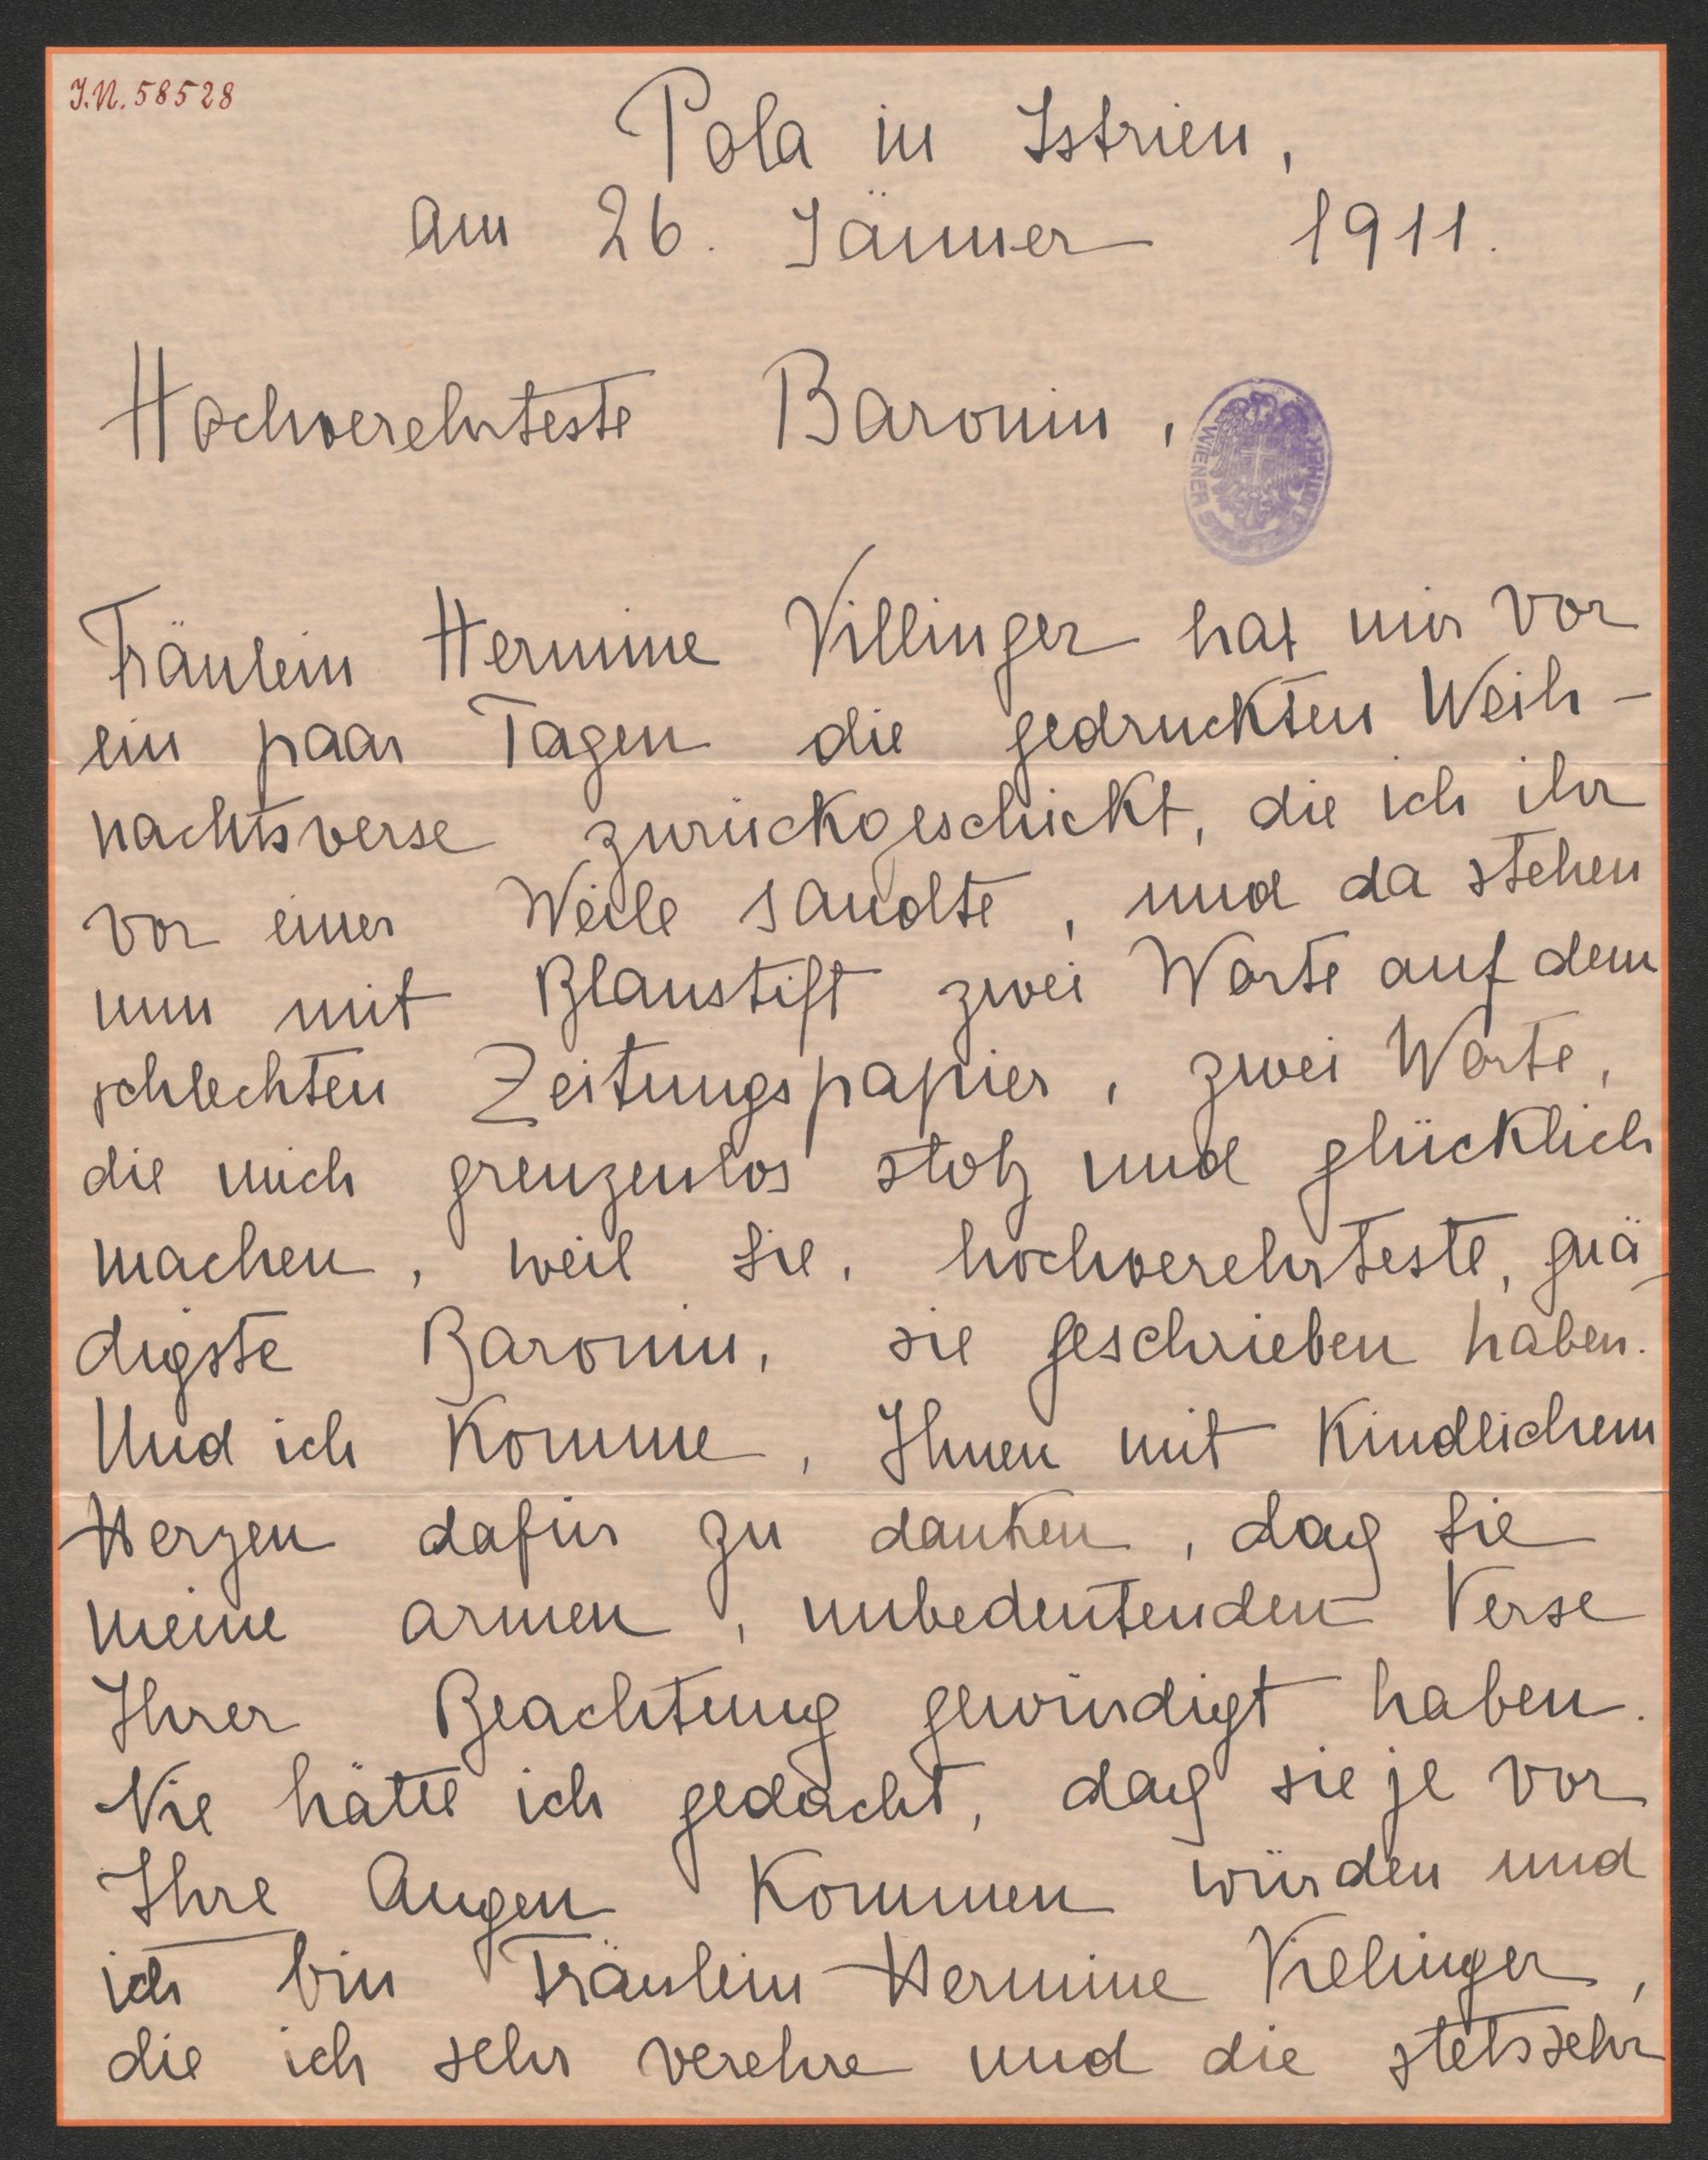 I.N. 58528
Pola in Istrien,
am 26. Jänner 1911.
Hochverehrteste Baronin,
WIENER
Fräulein Hermine Villinger hat mir vor
ein paar Tagen die gedruckten Weih-
nachtsverse zurückgeschickt, die ich ihr
vor einer Weile sandte, und da stehen
nun mit Blaustift zwei Worte auf dem
schlechten Zeitungspapier, zwei Worte,
die mich grenzenlos stolz und glücklich
machen, weil Sie, hochverehrteste, gnä-
digste Baronin, sie geschrieben haben.
Und ich komme, Ihnen mit kindlichem
Herzen dafür zu danken, daß Sie
meine armen, unbedeutenden Verse
Ihrer Beachtung gewürdigt haben.
Nie hätte ich gedacht, daß sie je vor
Ihre Augen kommen würden und
ich bin Fräulein Hermine Villinger,
die ich sehr verehre und die stets sehr